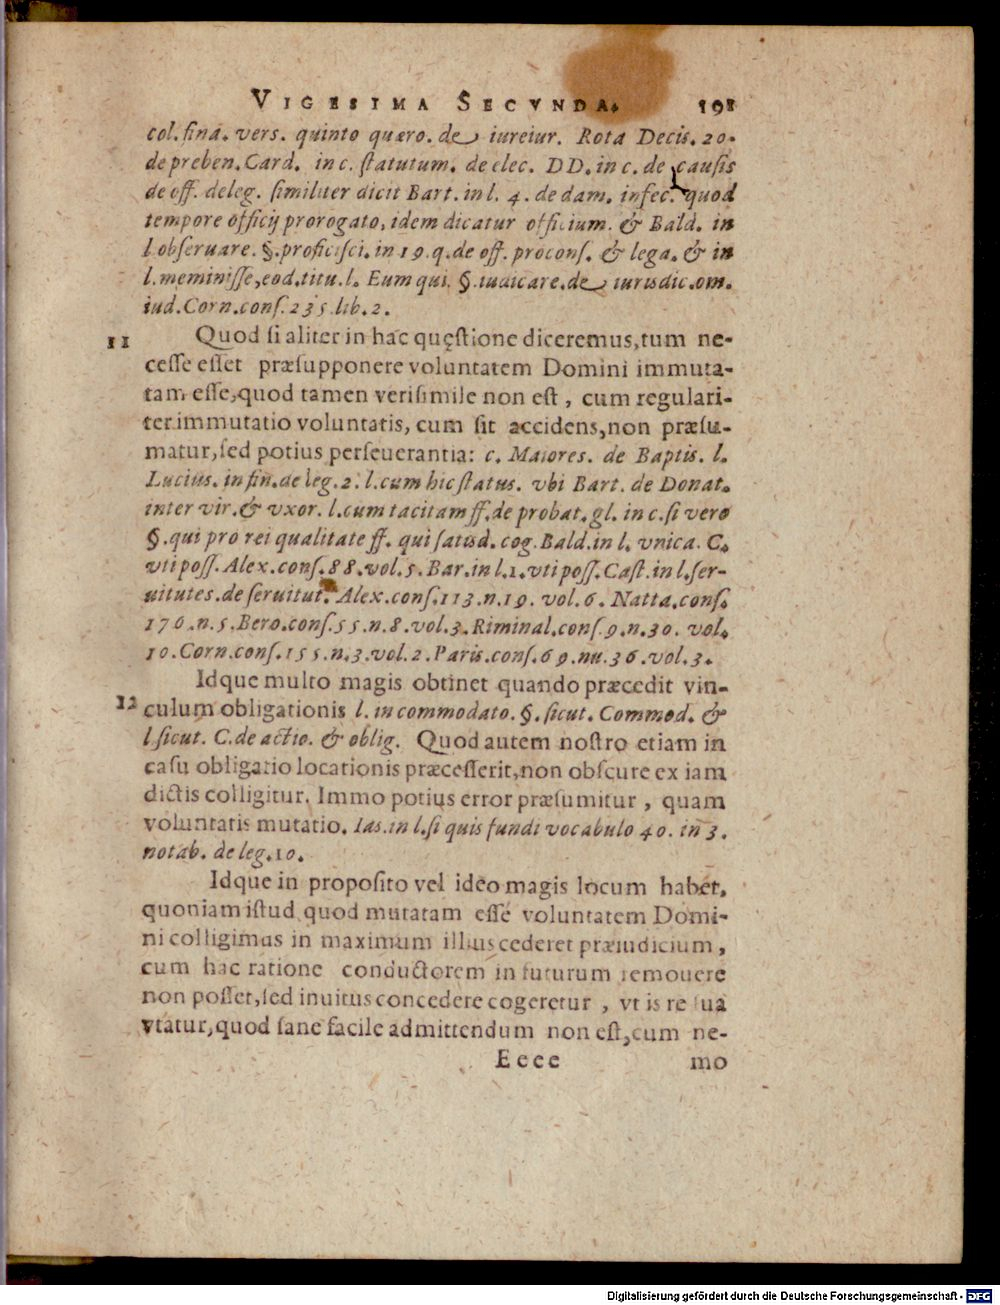 VIGESIMA SECVNDA. 191
col. fina. vers. quinto quæro. de iureiur. Rota Decis. 20.
de preben. Card. in c. ſtatutum. de elec. DD. in c. de cauſis
de off. deleg. ſimiliter dicit Bart. in l. 4. de dam. infec. quod
tempore officij prorogato, idem dicatur officium. & Bald. in
l obſeruare. §. proficiſci. in 19. q. de off. proconſ. & lega. & in
l. meminiſſe, eod. titu. l. Eum qui. §. iudicare. de iurisdic. om.
iud. Corn. conſ. 235 lib. 2.
11 Quod ſi aliter in hac quęſtione diceremus, tum ne-
ceſſe eſſet præſupponere voluntatem Domini immuta-
tam eſſe, quod tamen veriſimile non eſt, cum regulari-
ter immutatio voluntatis, cum ſit accidens, non præſu-
matur, ſed potius perſeuerantia: c. Maiores. de Baptis. l.
Lucius. in fin. de leg. 2. l. cum hic ſtatus. vbi Bart. de Donat.
inter vir. & vxor. l. cum tacitam ff. de probat. gl. in c. ſi vero
§. qui pro rei qualitate ff. qui ſatisd. cog. Bald. in l. vnica. C.
vti poſſ. Alex. conſ. 88. vol. 5. Bar. in l. 1. vti poſſ. Caſt. in l. ſer-
uitutes. de ſeruitut. Alex. conſ. 113. n. 19. vol. 6. Natta. conſ.
176. n. 5. Bero. conſ. 55. n. 8. vol. 3. Riminal. conſ. 9. n. 30. vol.
10. Corn. conſ. 155. n. 3. vol. 2. Paris. conſ. 69. nu. 36. vol. 3.
Idque multo magis obtinet quando præcedit vin-
12 culum obligationis l. in commodato. §. ſicut. Commod. &
l. ſicut. C. de actio. & oblig. Quod autem noſtro etiam in
caſu obligatio locationis præceſſerit, non obſcure ex iam
dictis colligitur. Immo potius error præſumitur, quam
voluntatis mutatio. Ias. in l. ſi quis fundi vocabulo 40. in 3.
notab. de leg. 10.
Idque in propoſito vel ideo magis locum habet,
quoniam iſtud quod mutatam eſſe voluntatem Domi-
ni colligimus in maximum illius cederet præiudicium,
cum hac ratione conductorem in futurum remouere
non poſſet, ſed inuitus concedere cogeretur, vt is re ſua
vtatur, quod ſane facile admittendum non eſt, cum ne-
Eeee mo
Digitalisierung gefördert durch die Deutsche Forschungsgemeinschaft - DFG